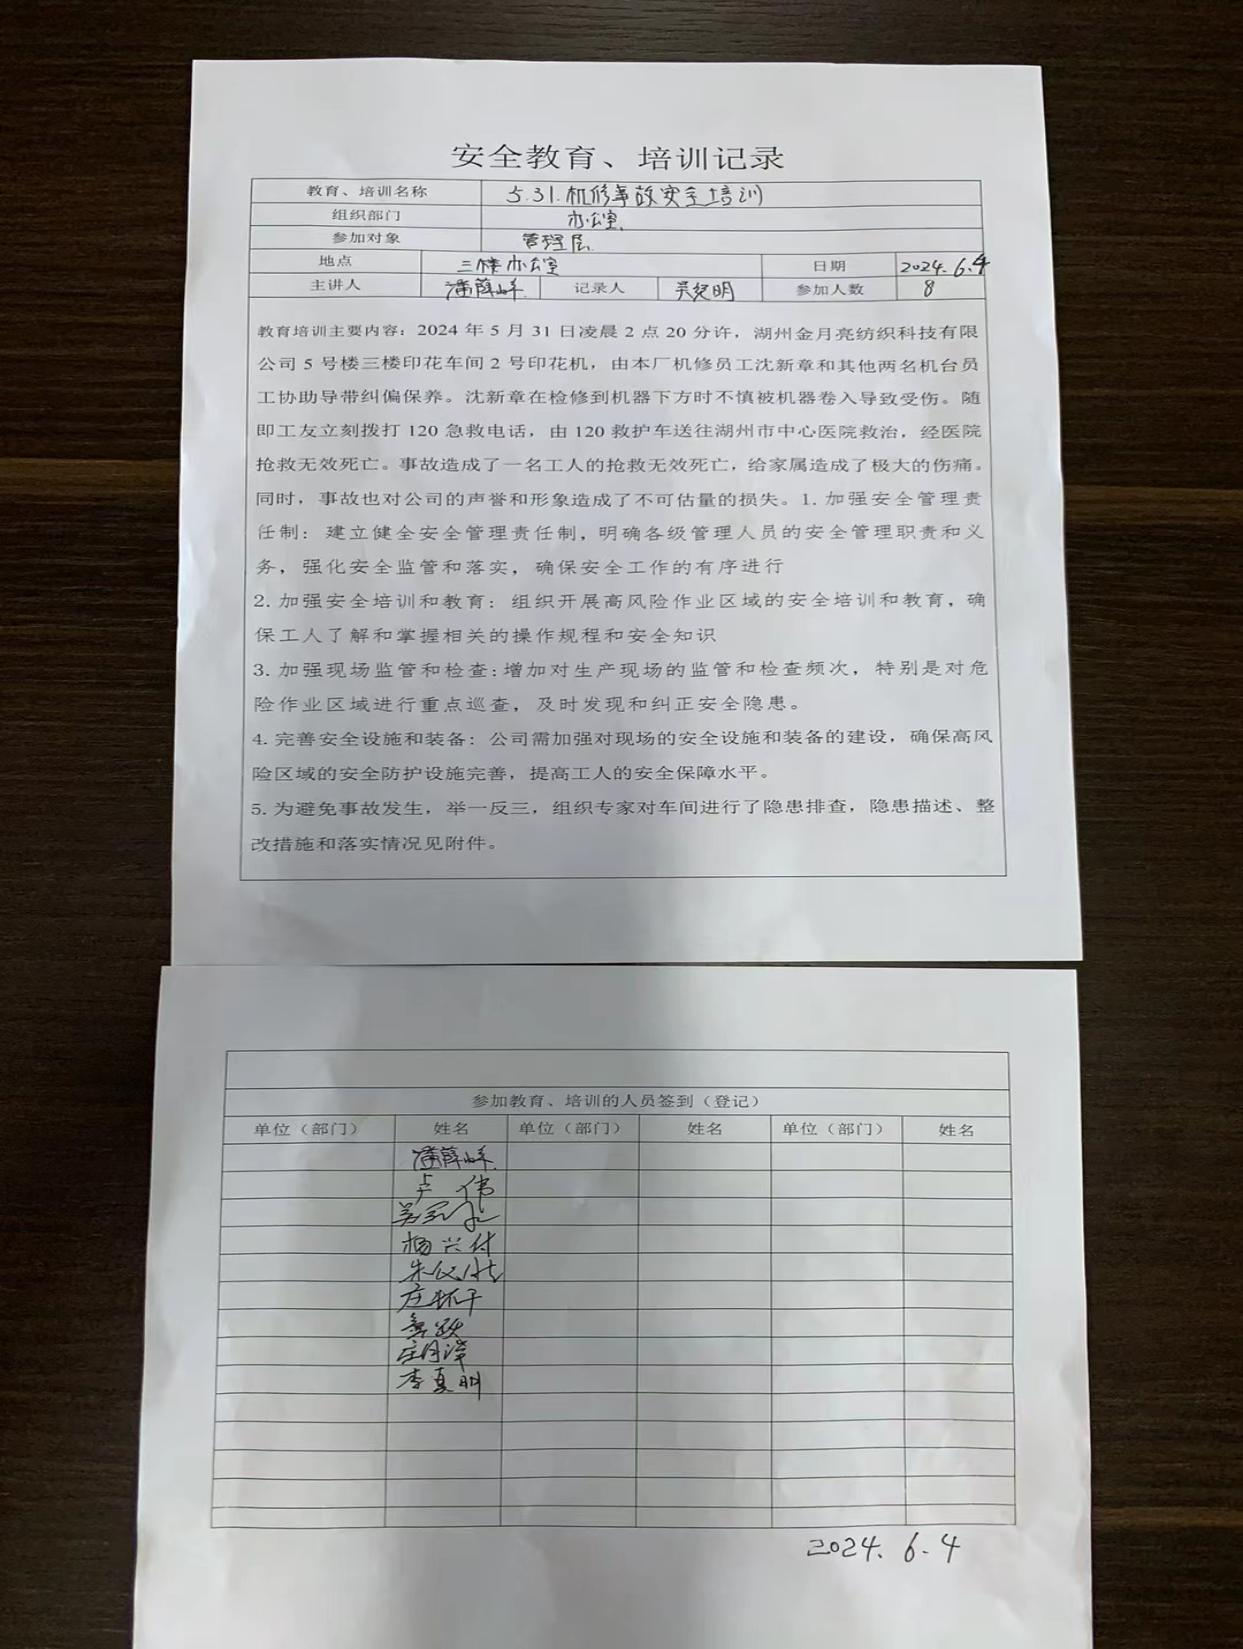 安全教育、培训记录
教育、培训名称 5.31.机修事故安全培训
组织部门 办公室
参加对象 管理层
地点 三楼办公室 日期 2024.6.4
主讲人 记录人 参加人数 8
教育培训主要内容：2024 年 5 月 31 日凌晨 2 点 20 分许，湖州金月亮纺织科技有限
公司 5 号楼三楼印花车间 2 号印花机，由本厂机修员工沈新章和其他两名机台员
工协助导带纠偏保养。沈新章在检修到机器下方时不慎被机器卷入导致受伤。随
即工友立刻拨打 120 急救电话，由 120 救护车送往湖州市中心医院救治，经医院
抢救无效死亡。事故造成了一名工人的抢救无效死亡，给家属造成了极大的伤痛。
同时，事故也对公司的声誉和形象造成了不可估量的损失。1. 加强安全管理责
任制： 建立健全安全管理责任制，明确各级管理人员的安全管理职责和义
务，强化安全监管和落实，确保安全工作的有序进行
2. 加强安全培训和教育：组织开展高风险作业区域的安全培训和教育，确
保工人了解和掌握相关的操作规程和安全知识
3. 加强现场监管和检查：增加对生产现场的监管和检查频次，特别是对危
险作业区域进行重点巡查，及时发现和纠正安全隐患。
4. 完善安全设施和装备：公司需加强对现场的安全设施和装备的建设，确保高风
险区域的安全防护设施完善，提高工人的安全保障水平。
5. 为避免事故发生，举一反三，组织专家对车间进行了隐患排查，隐患描述、整
改措施和落实情况见附件。
参加教育、培训的人员签到（登记）
单位（部门） 姓名 单位（部门） 姓名 单位（部门） 姓名
卢伟
杨兴付
李真明
2024.6.4